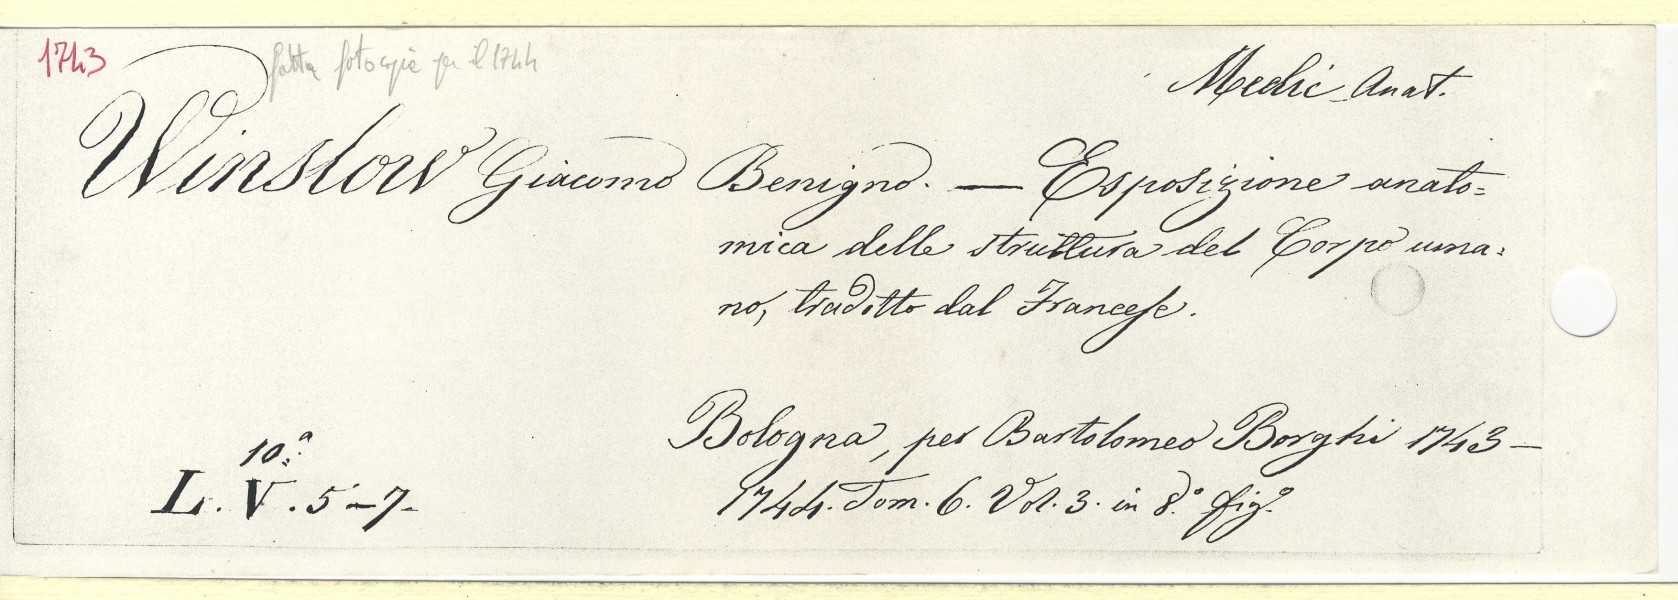 1743
fatta fotocopia per il 1744
Medic Anat.
Winslow Giacomo Benigno. — Esposizione anato=
mica delle struttura del Corpo uma=
no, tradotto dal Francese.
Bologna, per Bartolomeo Borghi 1743 –
1744. Tom. 6. Vol. 3. in 8.° fig.°
10.ª
L. V. 5–7.